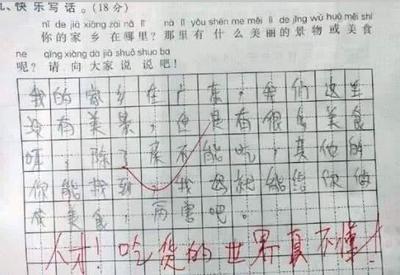 、快乐写话。(18分)
nǐ de jiā xiāng zài nǎ lǐ nà lǐ yǒu shén me měi lì de jǐng wù huò měi shí
你的家乡在哪里?那里有什么美丽的景物或美食
ne qǐng xiàng dà jiā shuō shuo ba
呢?请向大家说说吧!
我的家乡在广东,我们这里
没有美景,但是有很多美食
哦,除了亲不能吃,其他的
你能找到,我妈就能给你做
成美食,厉害吧。
人才!吃货的世界真不懂!